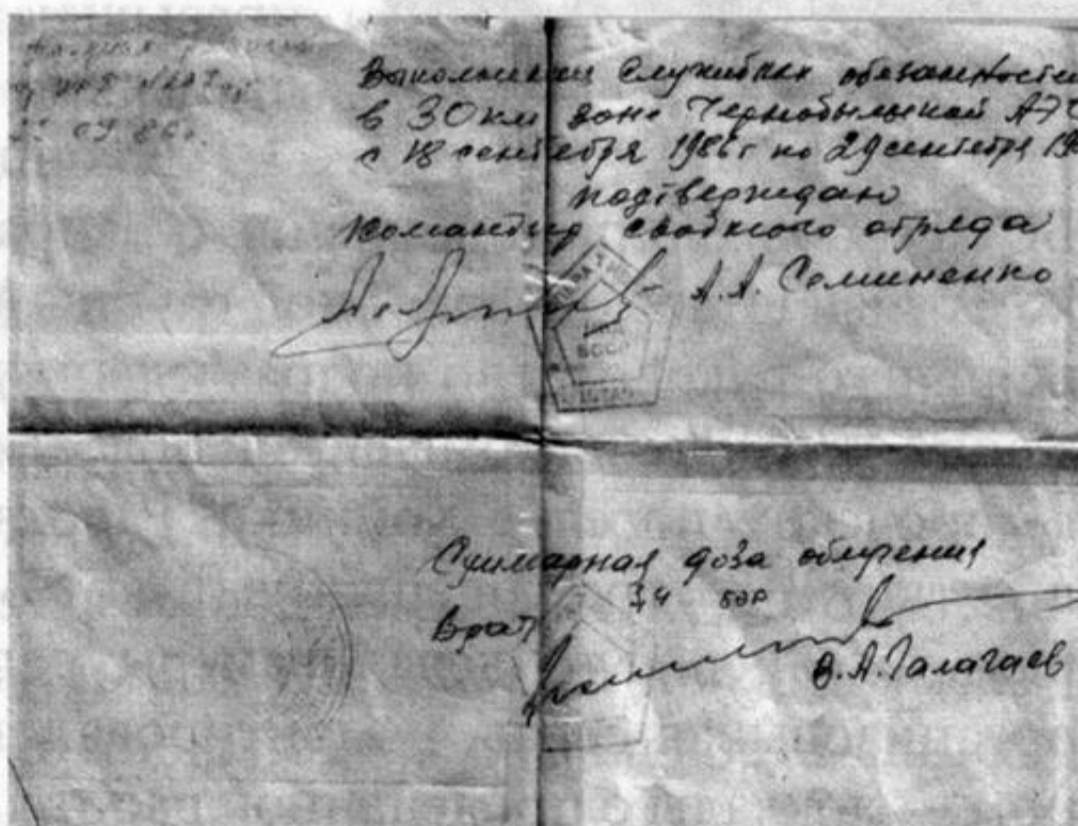 09.86г
Выполнении служебных обязанностей
в 30 км зоне Чернобыльской АЭС
с 18 сентября 1986г по 29 сентября 19
подтверждаю
Командир сводного отряда
А.А. Семиненко
БССР
Суммарная доза облучения
бэр
Врач
В.А. Галагаев